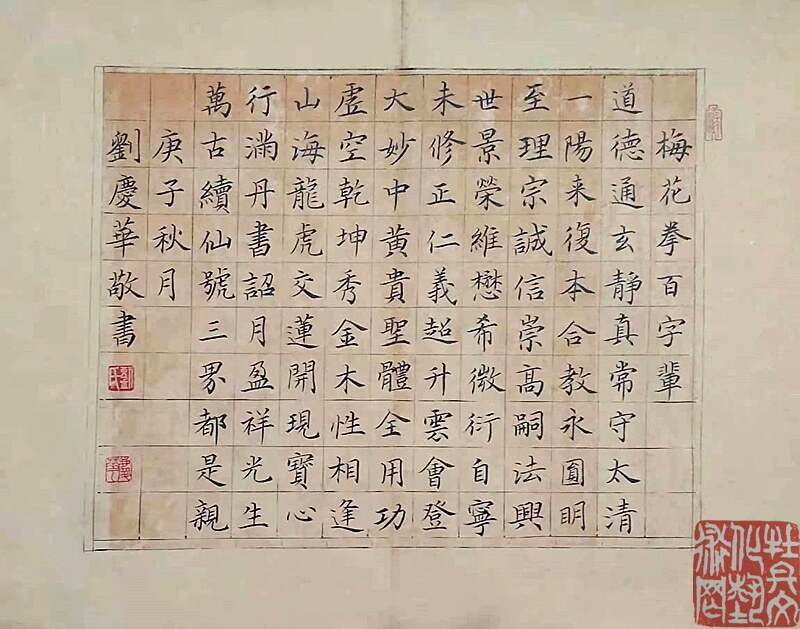 梅花拳百字輩
道德通玄靜真常守太清
一陽来復本合教永圓明
至理宗誠信崇高嗣法興
世景榮維懋希微衍自寧
未修正仁義超升雲會登
大妙中黃貴聖體全用功
虛空乾坤秀金木性相逢
山海龍虎交蓮開現寶心
行滿丹書詔月盈祥光生
萬古續仙號三界都是親
庚子秋月
劉慶華敬書